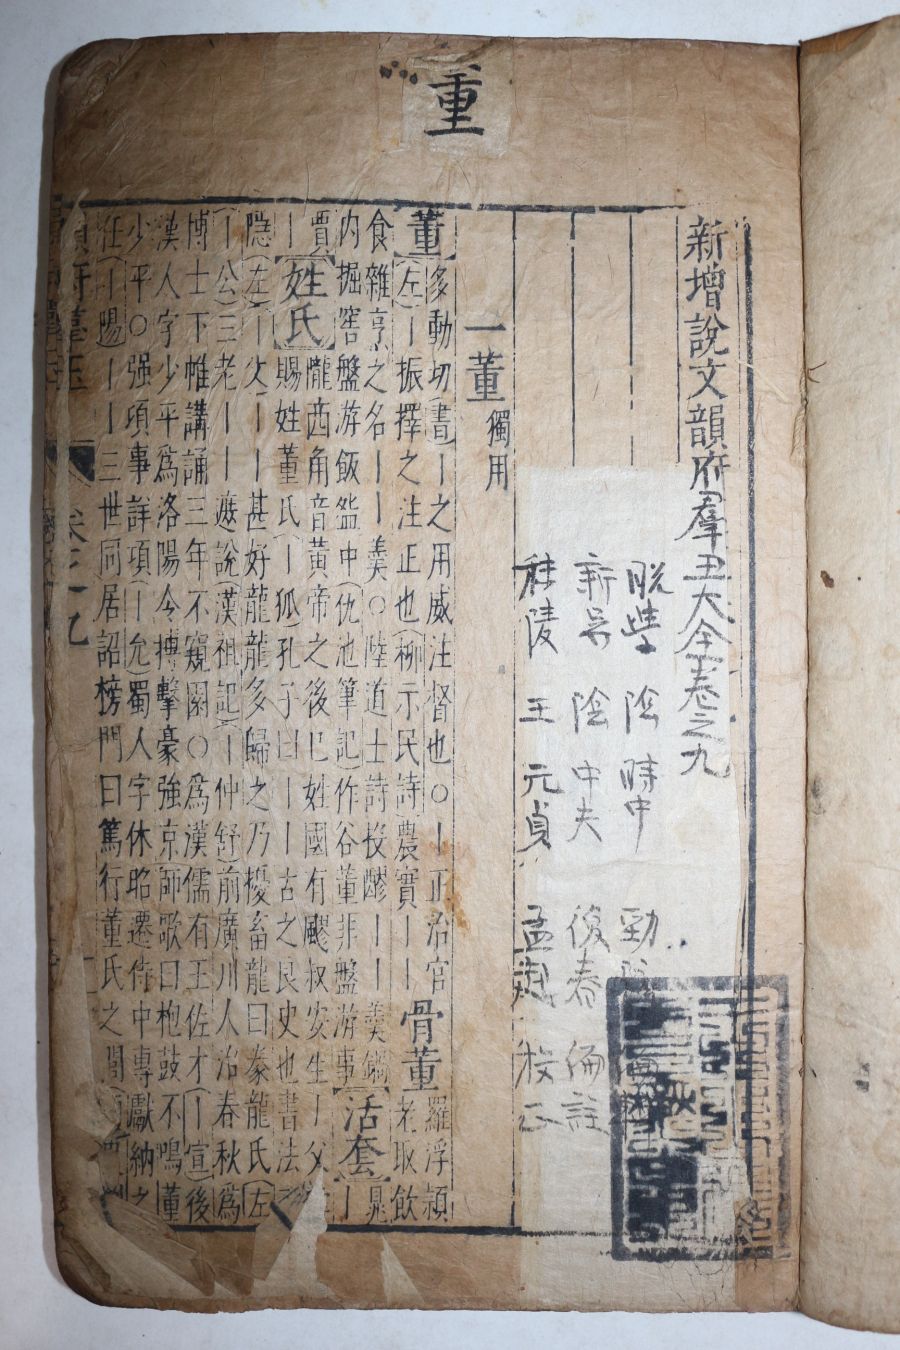 重
新增說文韻府羣玉大全卷之九
晚學 陰時中 勁弦
新吳 陰中夫 復春 編註
秣陵 王元貞 孟起 校正
一董獨用
董多動切書丨之用威注督也○丨正治官骨董羅浮頴
左丨振擇之注正也柳示民詩農實丨丨老取飲
食雜烹之名丨丨羹○陸道士詩投醪丨丨羹鍋活套丨晁
内掘窖盤游飯䇶中仇池筆記作谷董非盤游事
賈姓氏隴西角音黄帝之後巳姓國有飂叔安生丨父
丨賜姓董氏丨狐孔子曰丨丨古之良史也書法
隠左丨父丨丨甚好龍龍多歸之乃擾畜龍曰豢龍氏左
丨公三老丨丨遮說漢祖記丨仲舒前廣川人治春秋爲
博士下帷講誦三年不窺園○爲漢儒有王佐才丨宣後
漢人字少平爲洛陽令搏擊豪強京師歌曰枹鼓不鳴董
少平○强項事詳項丨允蜀人字休昭遷侍中專獻納之
任丨陽丨丨三世同居詔榜門曰篤行董氏之閭
卷之九